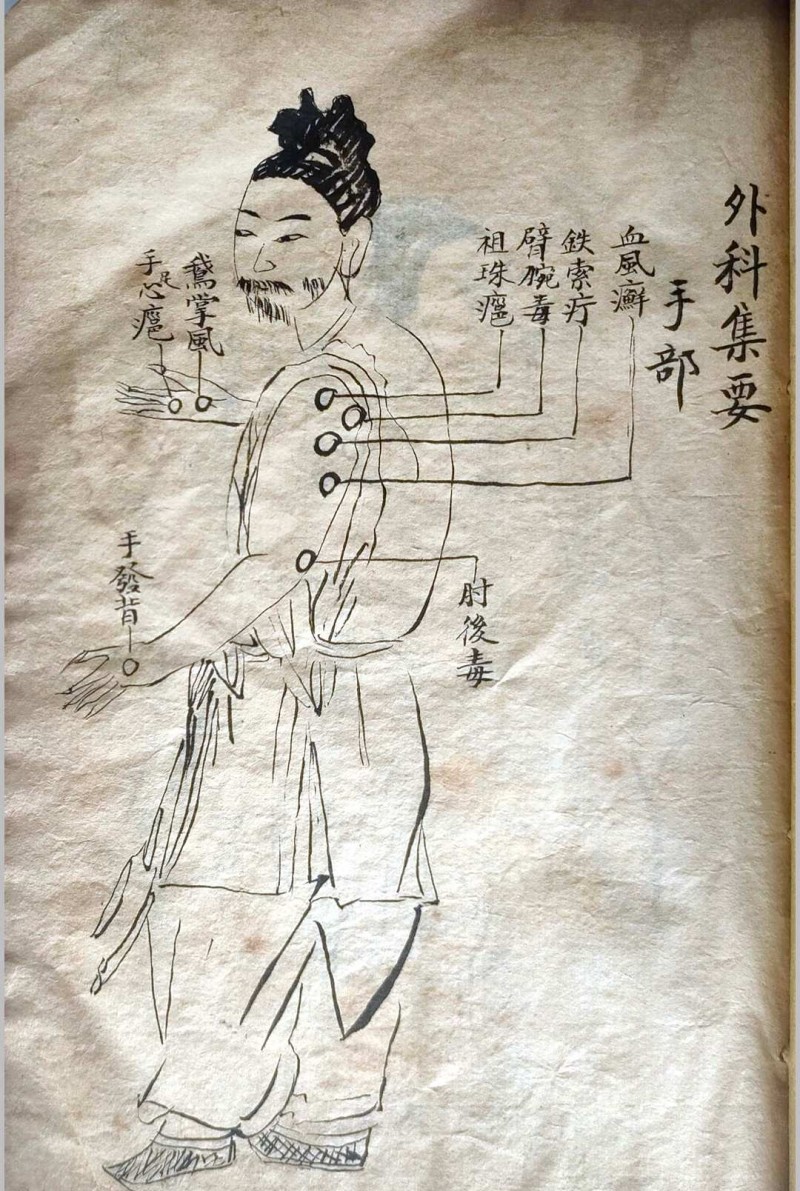 外科集要
手部
血風癬
鉄索疔
臂腕毒
祖珠瘟
肘後毒
鵝掌風
手足心瘟
手發背